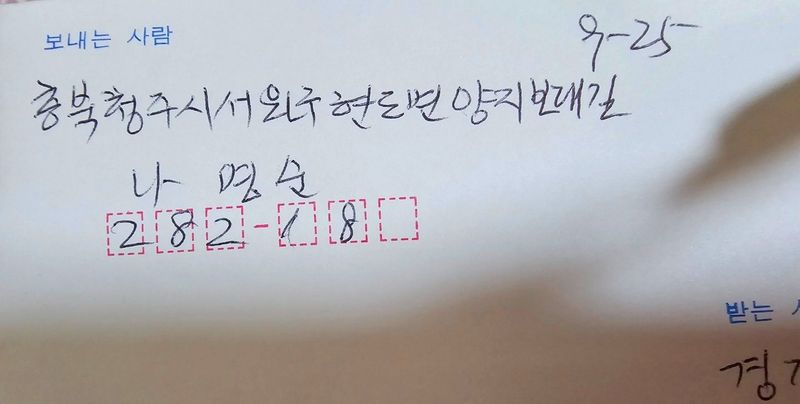 보내는 사람
9-25
충북청주시서원구현도면양지보대길
나 명순
282-18
받는
경기